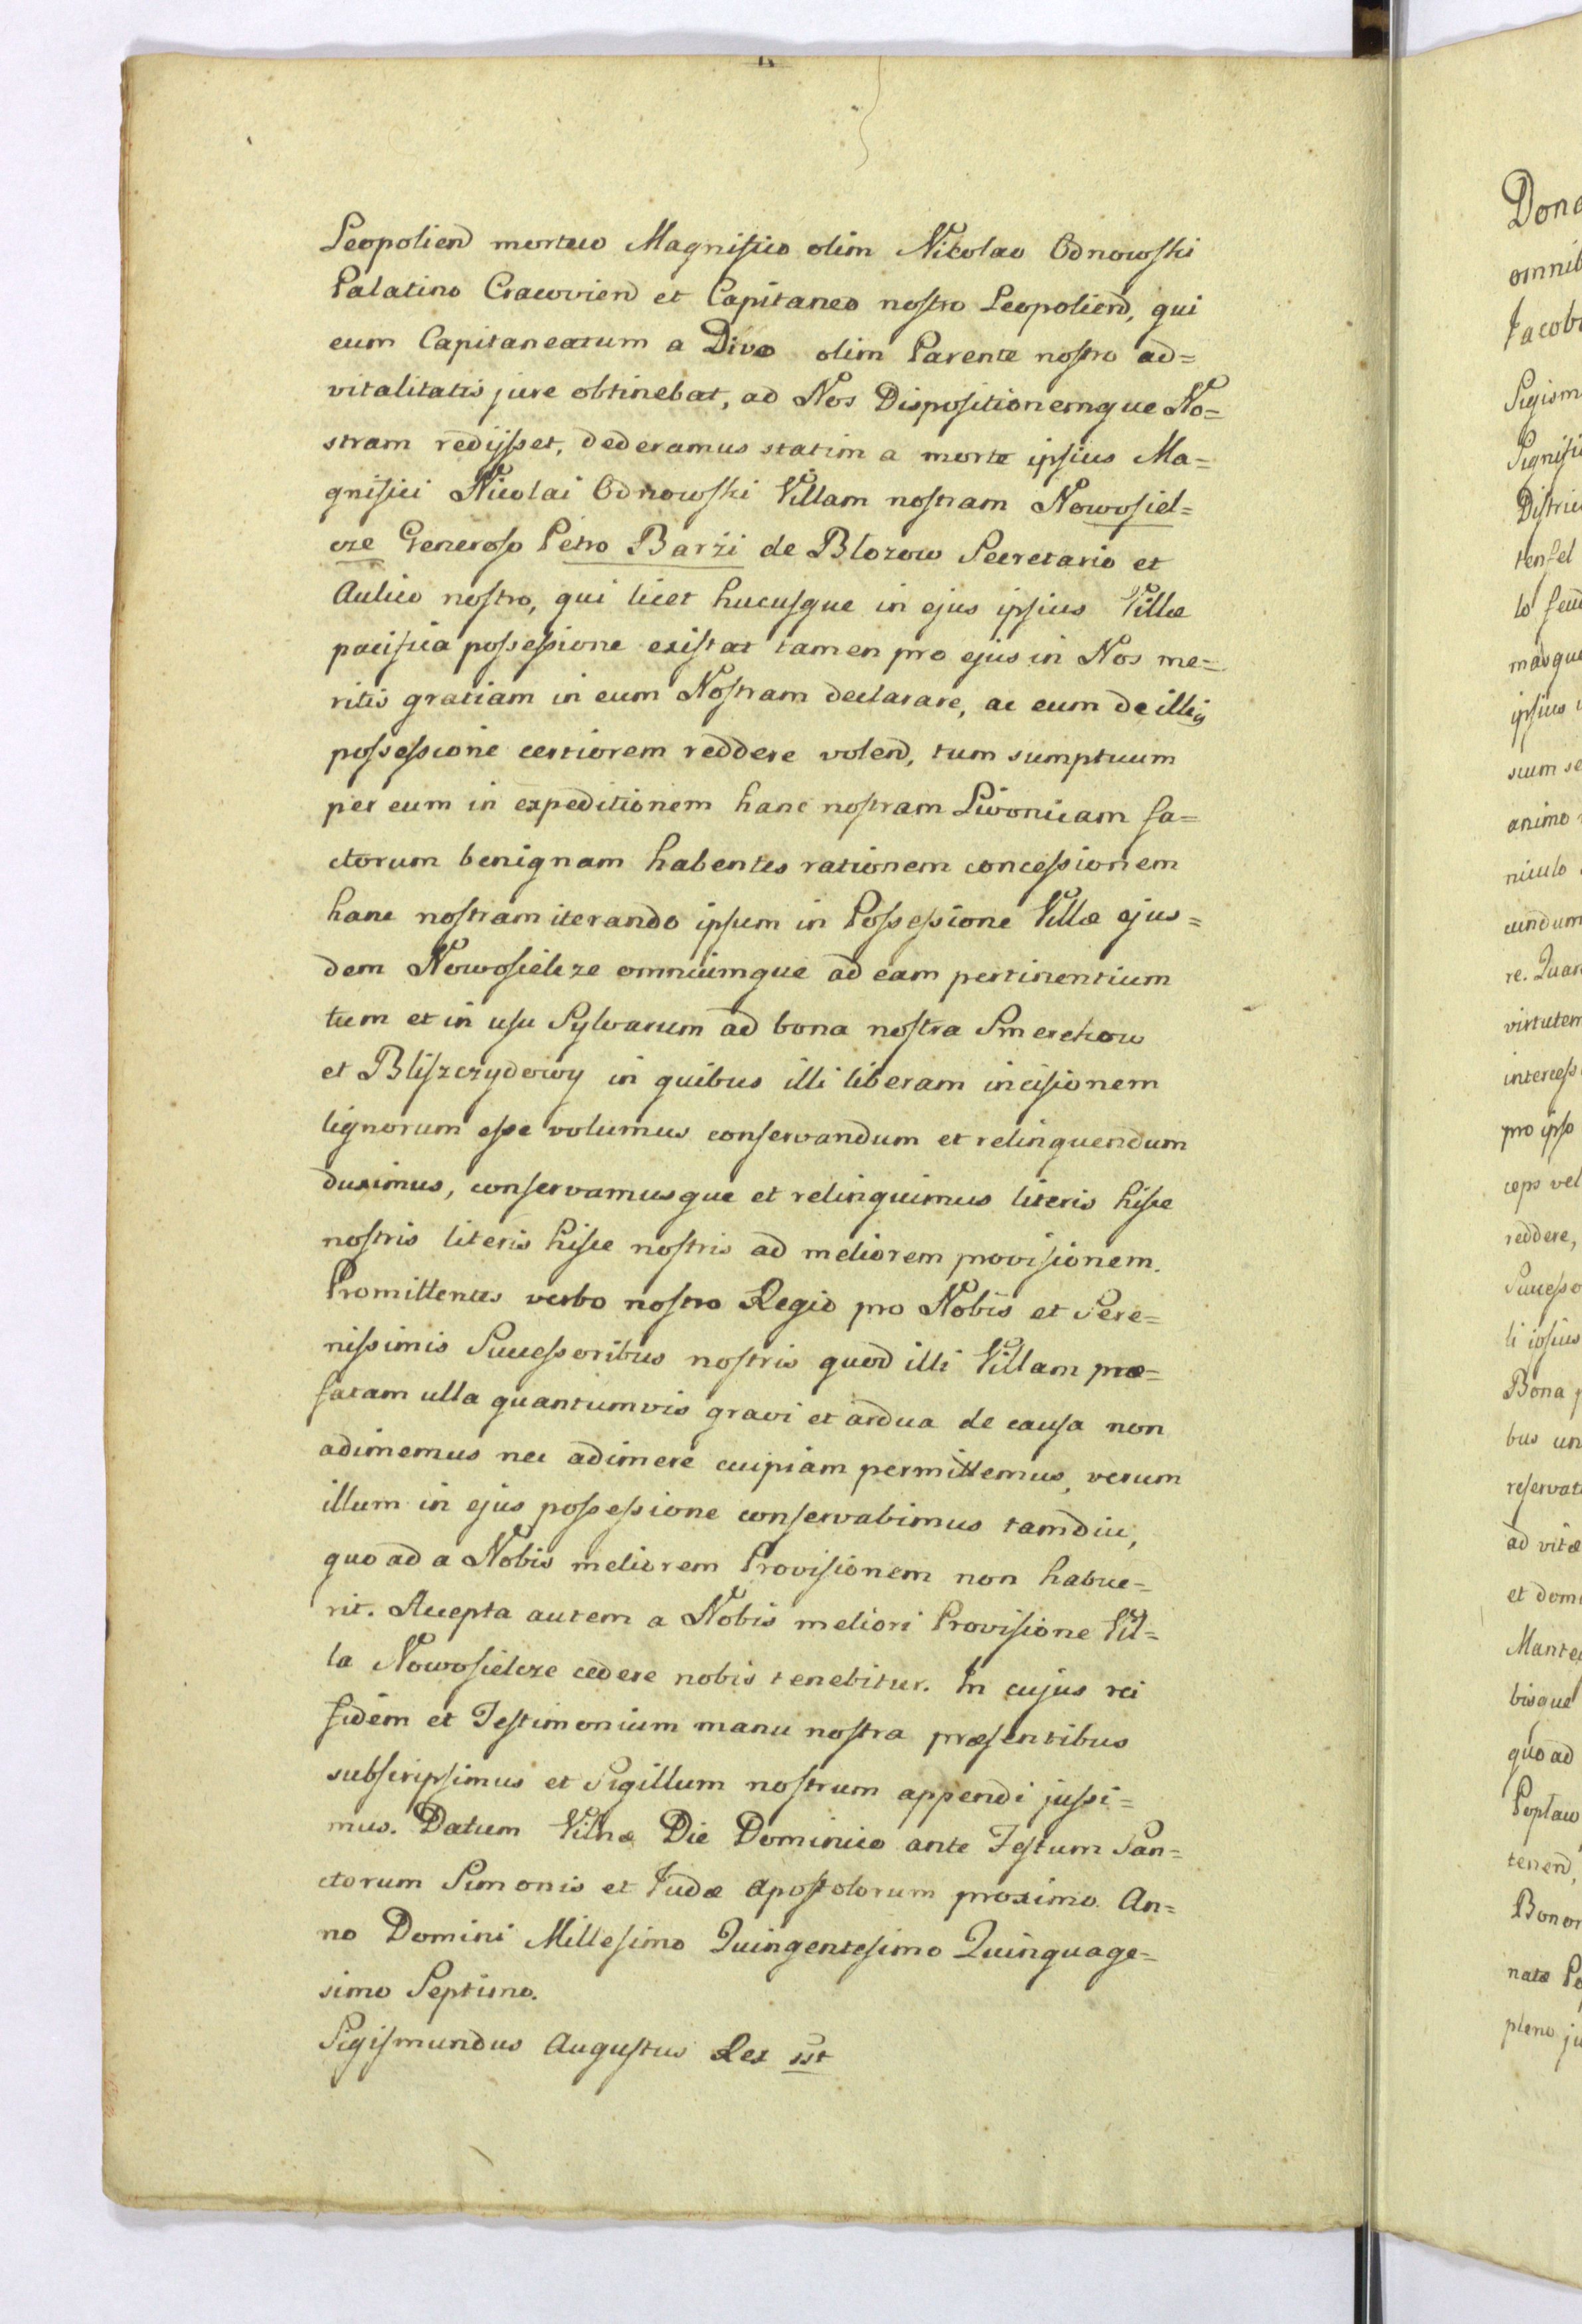 Leopoliend mortuo Magnifico olim Nicolao Odnowski
Palatino Cracoviend et Capitaneo nostro Leopoliend, qui
eum Capitaneatum a Divo olim Parente nostro ad=
vitalitatis jure obtinebat, ad Nos Dispositionemque No=
stram redijsset, dederamus statim a morte ipsius Ma=
gnifici Nicolai Odnowski Villam nostram Nowosiel=
cze Generoso Petro Barzi de Blozow Secretario et
Aulico nostro, qui licet hucusque in ejus ipsius Villæ
pacifica possessione existat tamen pro ejus in Nos me=
ritis gratiam in eum Nostram declarare, ac eum de illis
possessione certiorem reddere volend, tum sumptuum
per eum in expeditionem hanc nostram Livonicam fa=
ctorum benignam habentes rationem concessionem
hanc nostram iterando ipsum in Possessione Villæ ejus=
dem Nowosielcze omniumque ad eam pertinentium
tum et in usu Sylvarum ad bona nostra Smerekow
et Bliszczydowy in quibus illi liberam incisionem
lignorum esse volumus conservandum et relinquendum
duximus, conservamusque et relinquimus literis hisce
nostris literis hisce nostris ad meliorem provisionem.
Promittentes verbo nostro Regio pro Nobis et Sere=
nissimis Successoribus nostris quod illi Villam præ=
fatam ulla quantumvis gravi et ardua de causa non
adimemus nec adimere cuipiam permittemus, verum
illum in ejus possessione conservabimus tamdiu,
quo ad a Nobis meliorem Provisionem non habue=
rit. Accepta autem a Nobis meliori Provisione Vil=
la Nowosielcze cedere nobis tenebitur. In cujus rei
fidem et Testimonium manu nostra præsentibus
subscripsimus et Sigillum nostrum appendi jussi=
mus. Datum Vilnæ Die Dominico ante Festum San=
ctorum Simonis et Judæ Apostolorum proximo. An=
no Domini Millesimo Quingentesimo Quinquage=
simo Septimo.
Sigismundus Augustus Rex sst
Dona
omnib
Jacob
Sigism
Signifi
Distric
tenfel
masque
ipsius
suum se
animo
niculo
cundum
re. Quan
virtutem
intercess
pro ipso
ceps vel
reddere,
Successo
li ipsius
Bona p
bus un
reservat
ad vitæ
et domi
Mante
bisque
quo ad
tenend,
Bonor
natæ Po
pleno ju